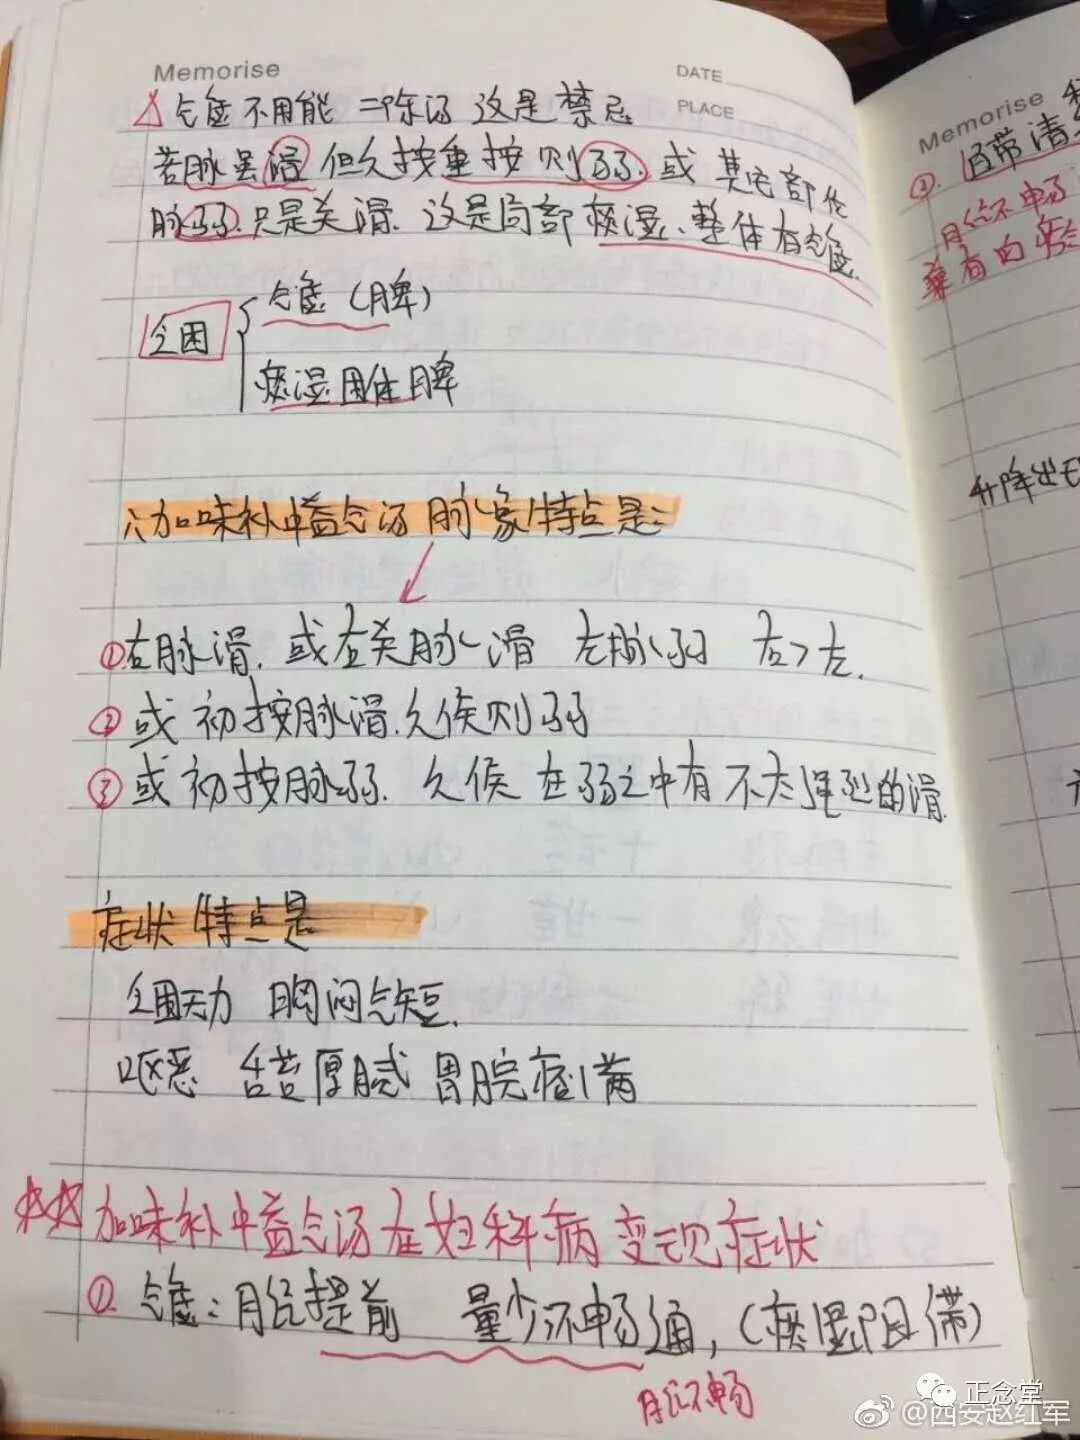 Memorise
DATE
PLACE
△气虚不用能 二陈汤 这是禁忌
若脉虽滑 但久按重按则弱. 或 其它部位
脉弱. 只是关滑. 这是局部痰湿、整体有气虚.
乏困
气虚 (脾)
痰湿困住脾
加味补中益气汤 脉象特点是:
①右脉滑. 或右关脉滑 左脉弱 右>左.
②或 初按脉滑. 久候则弱
③或 初按脉弱. 久候 在弱之中有 不太强烈的滑.
症状特点是
乏困无力 胸闷气短.
呕恶 舌苔厚腻 胃脘痞满
☆☆加味补中益气汤在妇科病变现症状
①. 气虚: 月经提前 量少不畅通, (痰湿阻滞)
月经不畅
Memorise
②. 
月经不畅
兼有
升降出
正念堂
@西安赵红军